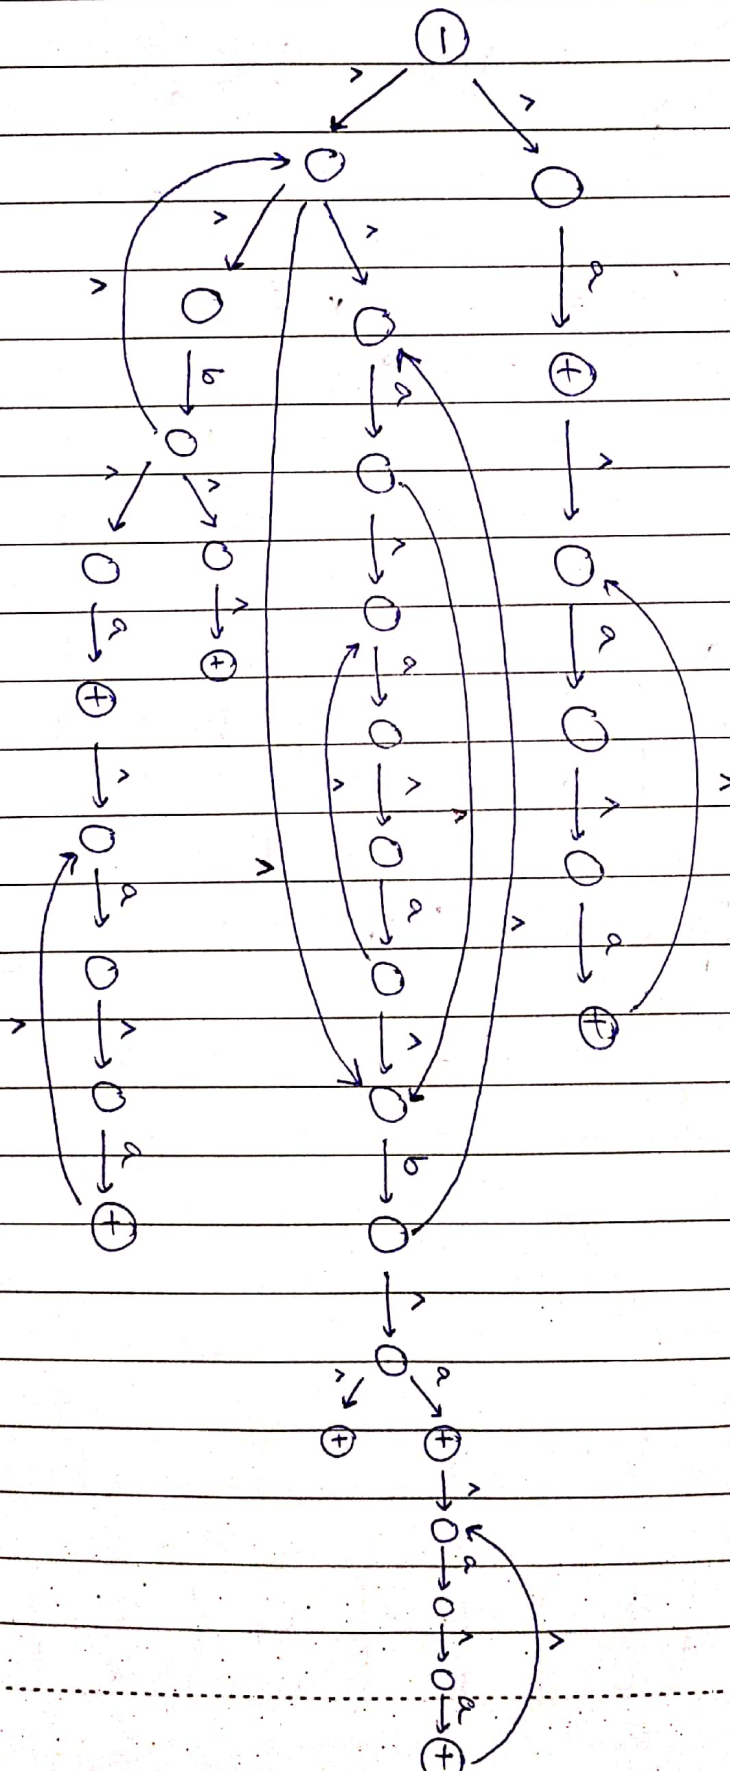 −
^ ^
a
+
^ ^
^
b a
^
^ ^ ^
^ a
a ^ +
+ a
^ ^ ^ ^ ^
^ a
a a
^
^ ^ ^ +
a b
+
^
^ a
+ +
^
a
^ ^
a
+